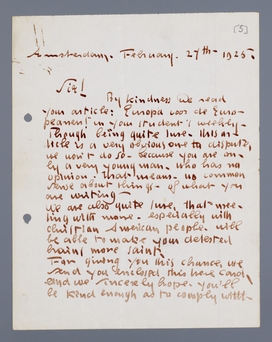 [5]
Amsterdam, February, 27th - 1925.
Sir!
By kindness we read
your article: "Europa voor de Euro-
peanen" in your student's weekly.
Though being quite sure this ar-
ticle is a very obvious one to dispute,
we won't do so - because you are on-
ly a very young man, who has no
opinion - that means no common
sense about things - of what you
are writing.
We are also quite sure, that mee-
ting with more - especially with
christian American people will
be able to make your detested
brains more saint.
For giving you this chance, we
send you enclosed, this here card,
and we sincerely hope - you'll
be kind enough as to comply with-